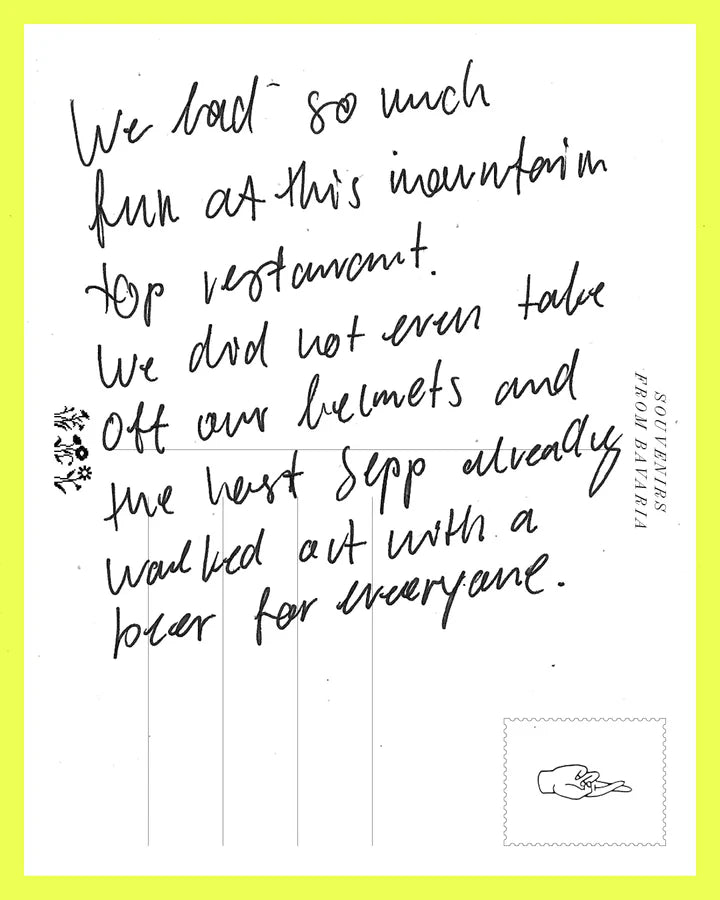 We had so much
fun at this mountain
top restaurant.
We did not even take
off our helmets and
the host Sepp already
walked out with a
beer for everyone.
SOUVENIRS
FROM BAVARIA